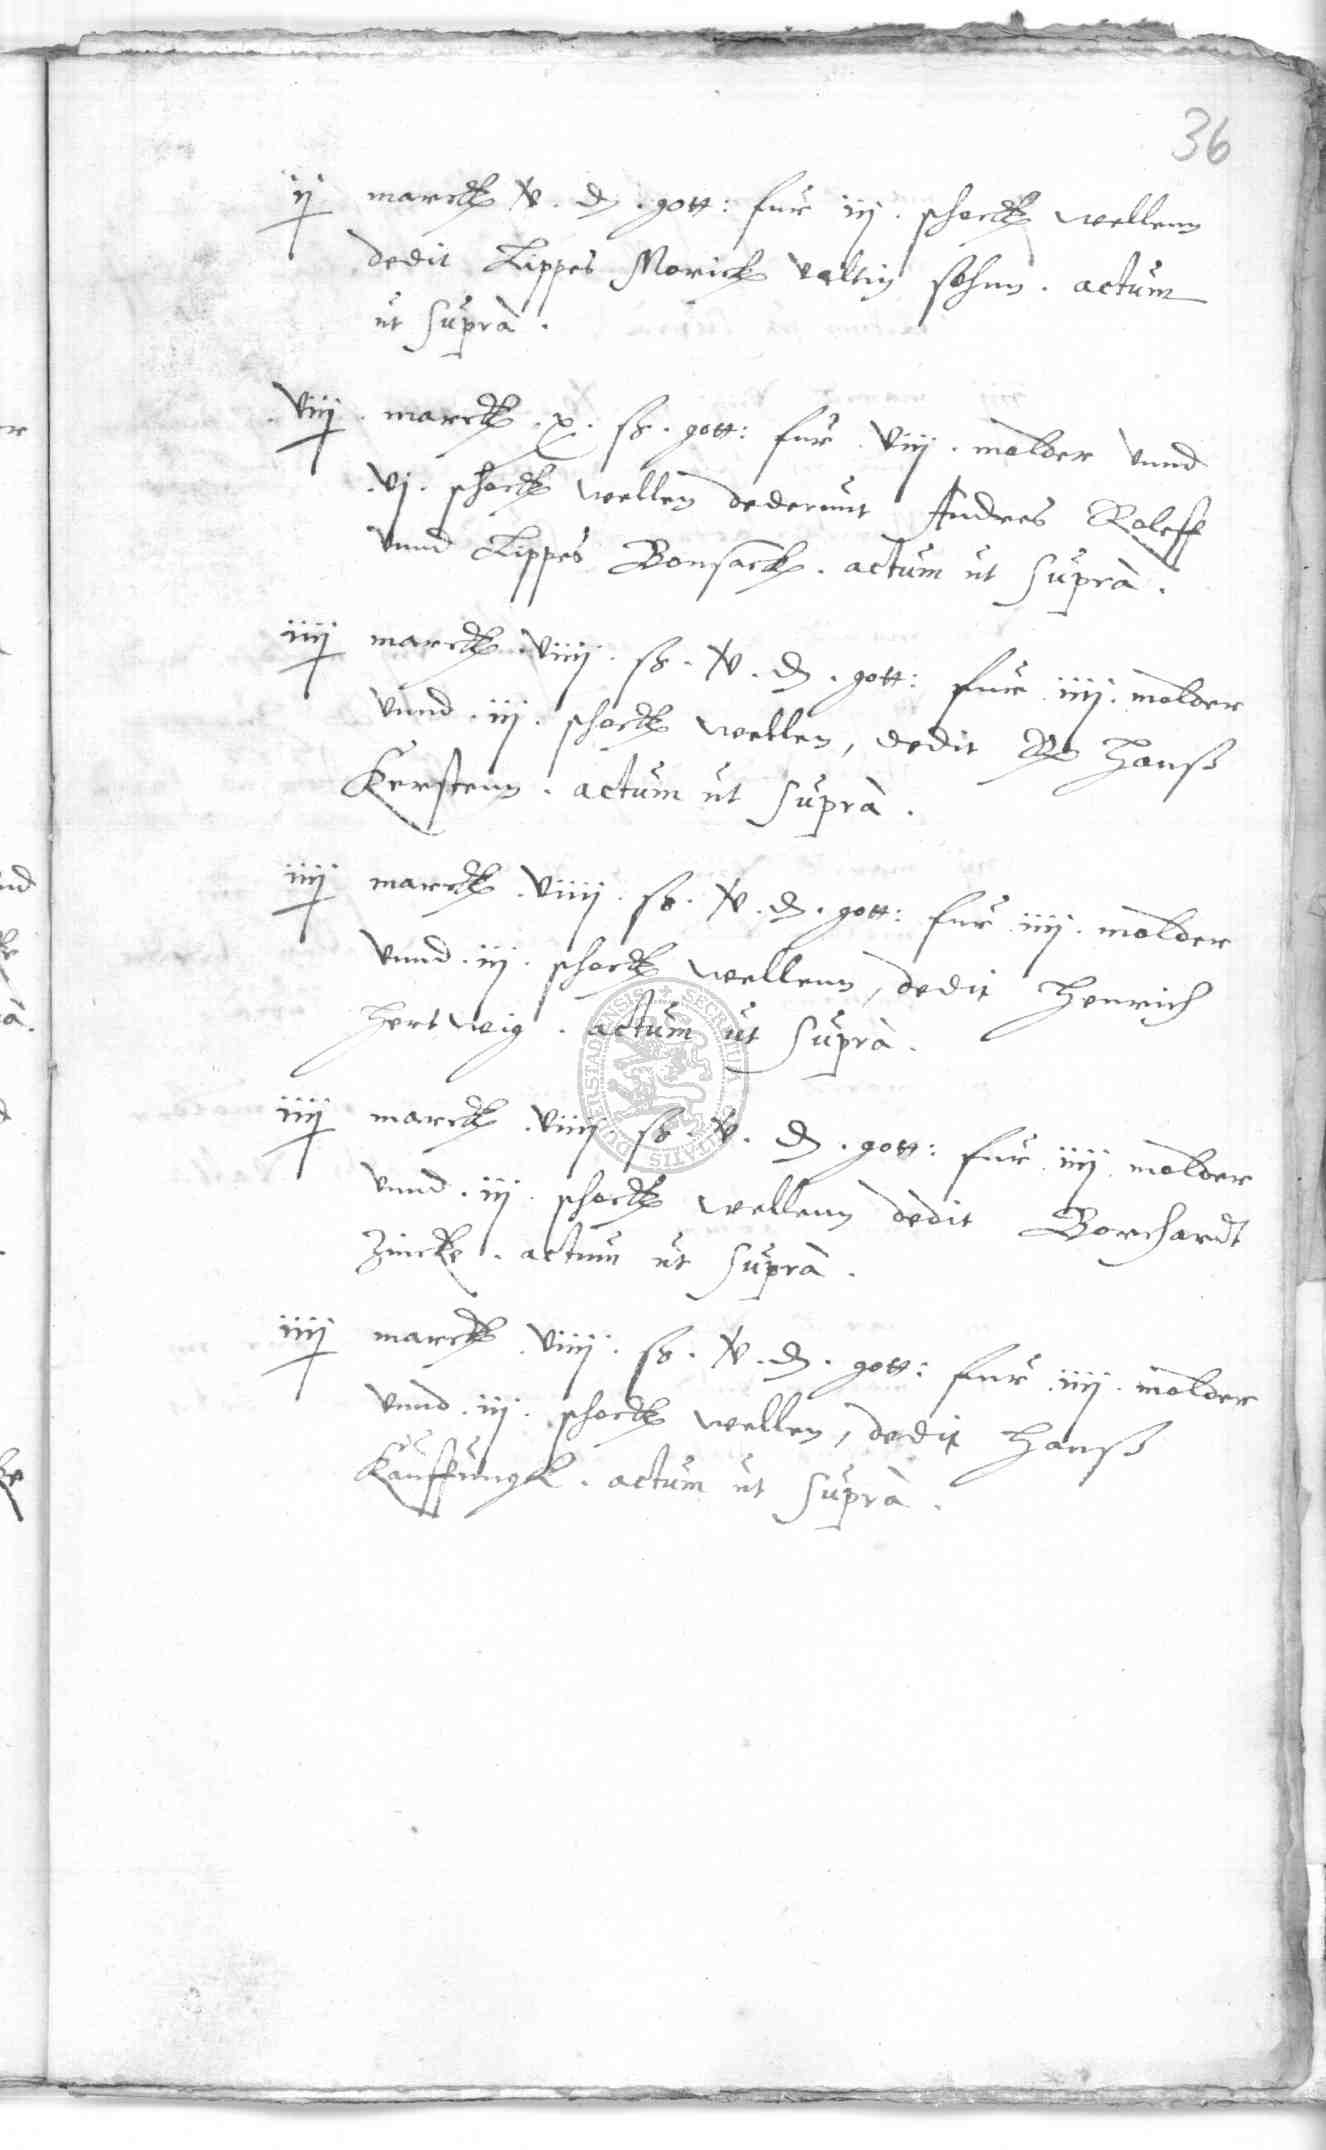 36
ij marck v. d. gott: fur iij. schock wellenn
dedit Lippes Morick valtin sohnn. actum
ut supra.
viij. marck. x. ß. gott: fur. viij. molder vnnd
.vj. schock wellen dederunt Andres Roleff
vnnd Lippes Bonsack. actum ut supra.
iiij marck. viiij. ß. v. d. gott: fur. iiij. molder
vnnd. iij. schock wellen, dedit Hanß
Kerstenn. actum ut supra.
iiij marck. viiij. ß. v. d. gott: fur. iiij. molder
vnnd. iij. schock wellenn, dedit Henrich
Hertwig. actum ut supra.
iiij marck. viiij ß. v. d. gott: fur. iiij. molder
vnnd. iij. schock wellenn dedit Borchardt
Zincke. actum ut supra.
iiij marck. viiij. ß. v. d. gott: fur. iiij. molder
vnnd. iij. schock wellen, dedit Hanß
Kauffungk. actum ut supra.